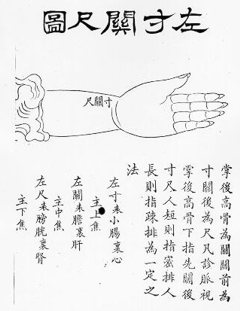 左寸關尺圖
寸關尺
掌後高骨為關關前為
寸關後為尺凡診脈視
掌後高骨下指先關後
寸尺人短則指密排人
長則指疎排為一定之
法
左寸表小腸裏心
主上焦
左關表膽裏肝
主中焦
左尺表膀胱裏腎
主下焦